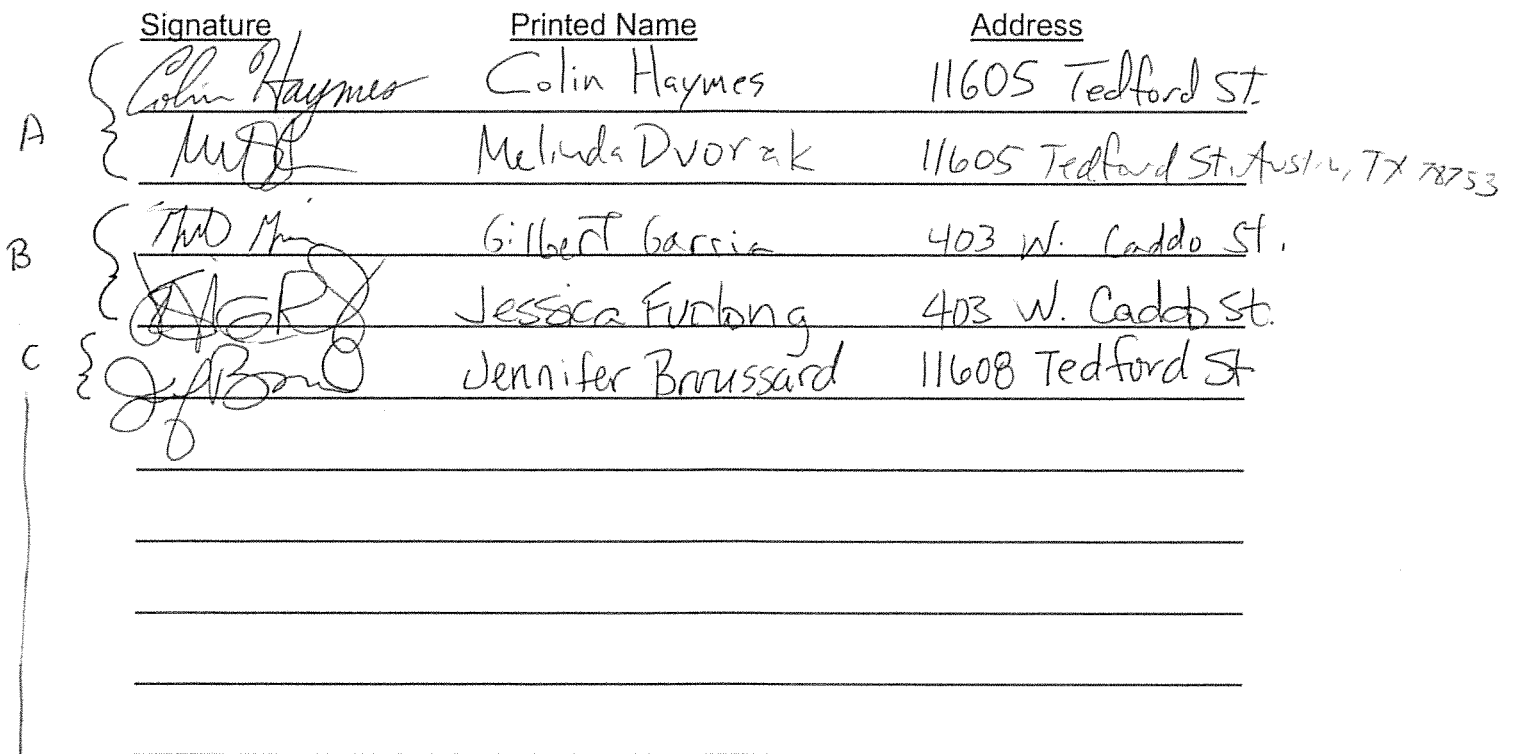 Signature Printed Name Address
Colin Haymes Colin Haymes 11605 Tedford St.
A
Melinda Dvorak 11605 Tedford St. Austin, TX 78753
Gilbert Garcia 403 W. Caddo St.
B
Jessica Furlong 403 W. Caddo St.
C Jennifer Broussard 11608 Tedford St